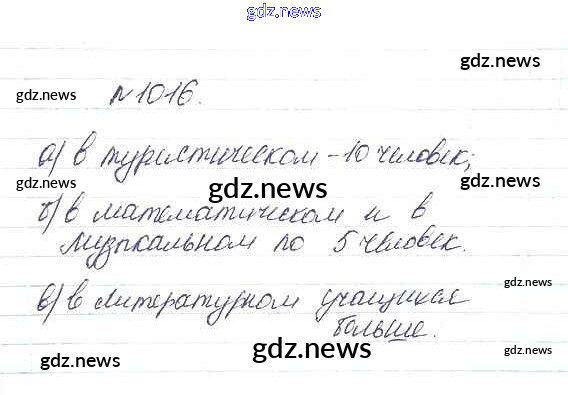 gdz.news
gdz.news
gdz.news
№1016.
а) в туристическом - 10 человек;
gdz.news
gdz.news
gdz.news
б) в математическом и в
музыкальном по 5 человек.
gdz.news
в) в литературном учащихся
больше.
gdz.news
gdz.news
gdz.news